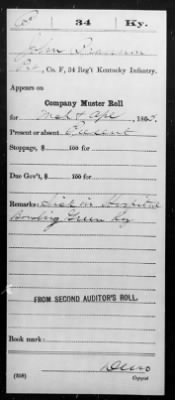 34 Ky.
John
Pvt, Co. F, 34 Reg't Kentucky Infantry.
Appears on
Company Muster Roll
for Mch & Apl, 1865.
Present or absent Present
Stoppage, $ 100 for
Due Gov't, $ 100 for
Remarks: Sick in Hospital
Bowling Green Ky
FROM SECOND AUDITOR'S ROLL.
Book mark:
(858) Copyist.